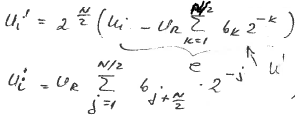 u_i' = 2^{N/2} (u_i - u_R \sum_{k=1}^{N/2} b_k 2^{-k})
e u'
u_i' = u_R \sum_{j=1}^{N/2} b_{j+\frac{N}{2}} \cdot 2^{-j}